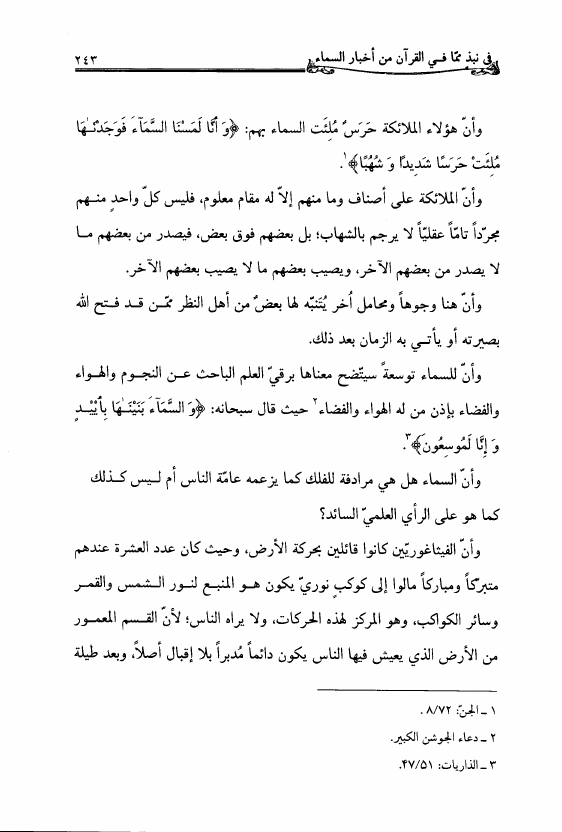 في نبذ ممّا في القرآن من أخبار السماء
٢٤٣
وأنّ هؤلاء الملائكة حَرَسٌ مُلئَت السماء بهم: ﴿وَ أَنَّا لَمَسْنَا السَّمَآءَ فَوَجَدْنَـٰهَا
مُلِئَتْ حَرَسًا شَدِيدًا وَ شُهُبًا﴾١.
وأنّ الملائكة على أصناف وما منهم إلاّ له مقام معلوم، فليس كلّ واحدٍ منهم
مجرّداً تامّاً عقليّاً لا يرجم بالشهاب؛ بل بعضهم فوق بعض، فيصدر من بعضهم ما
لا يصدر من بعضهم الآخر، ويصيب بعضهم ما لا يصيب بعضهم الآخر.
وأنّ هنا وجوهاً ومحامل أُخر يُتَنبّه لها بعضٌ من أهل النظر ممّن قد فتح الله
بصيرته أو يأتي به الزمان بعد ذلك.
وأنّ للسماء توسعةً سيتّضح معناها برقيّ العلم الباحث عن النجوم والهواء
والفضاء بإذن من له الهواء والفضاء٢ حيث قال سبحانه: ﴿وَ السَّمَآءَ بَنَيْنَـٰهَا بِأَيْيْدٍ
وَ إِنَّا لَمُوسِعُونَ﴾٣.
وأنّ السماء هل هي مرادفة للفلك كما يزعمه عامّة الناس أم ليس كذلك
كما هو على الرأي العلميّ السائد؟
وأنّ الفيثاغوريّين كانوا قائلين بحركة الأرض، وحيث كان عدد العشرة عندهم
متبرّكاً ومباركاً مالوا إلى كوكبٍ نوريّ يكون هو المنبع لنور الشمس والقمر
وسائر الكواكب، وهو المركز لهذه الحركات، ولا يراه الناس؛ لأنّ القسم المعمور
من الأرض الذي يعيش فيها الناس يكون دائماً مُدبراً بلا إقبال أصلاً، وبعد طيلة
١ ـ الجنّ: ٨/٧٢ .
٢ ـ دعاء الجوشن الكبير.
٣ ـ الذاريات: ۴٧/۵١.